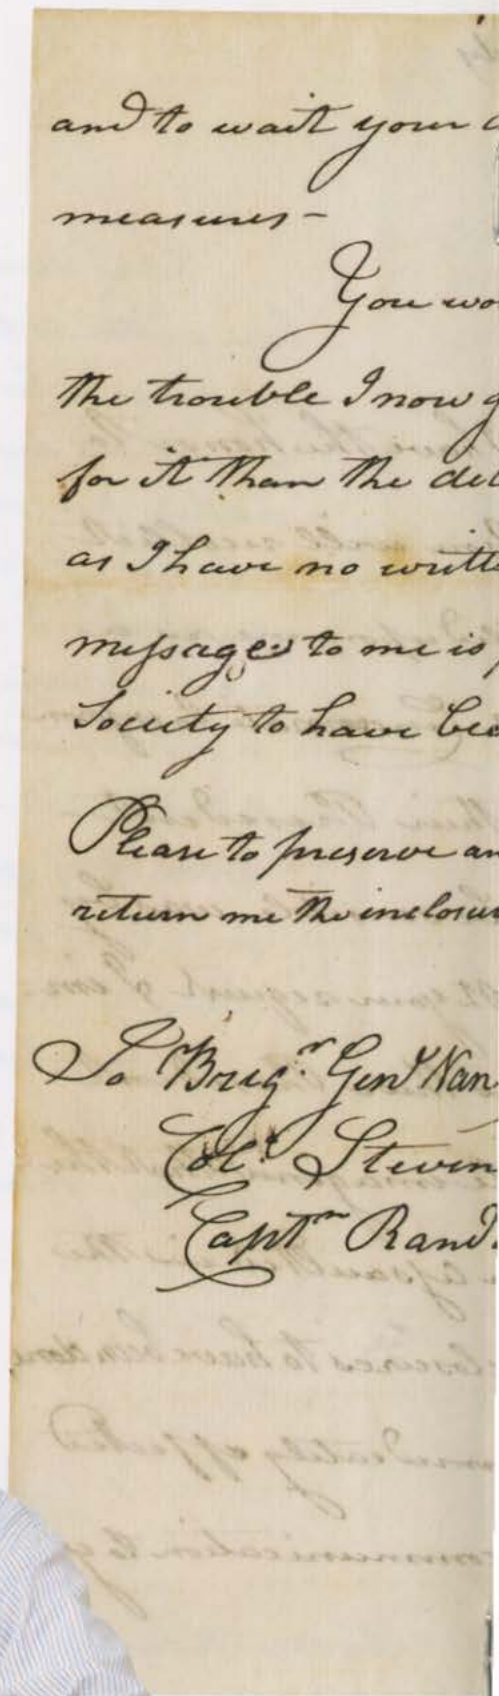 and to wait your
measures -
You wo
the trouble I now g
for it than the del
as I have no writte
messages to me is
Society to have bee
Please to preserve an
return me the inclosur
To Brigr. Genl Nan
Col. Steven
Captn Rand